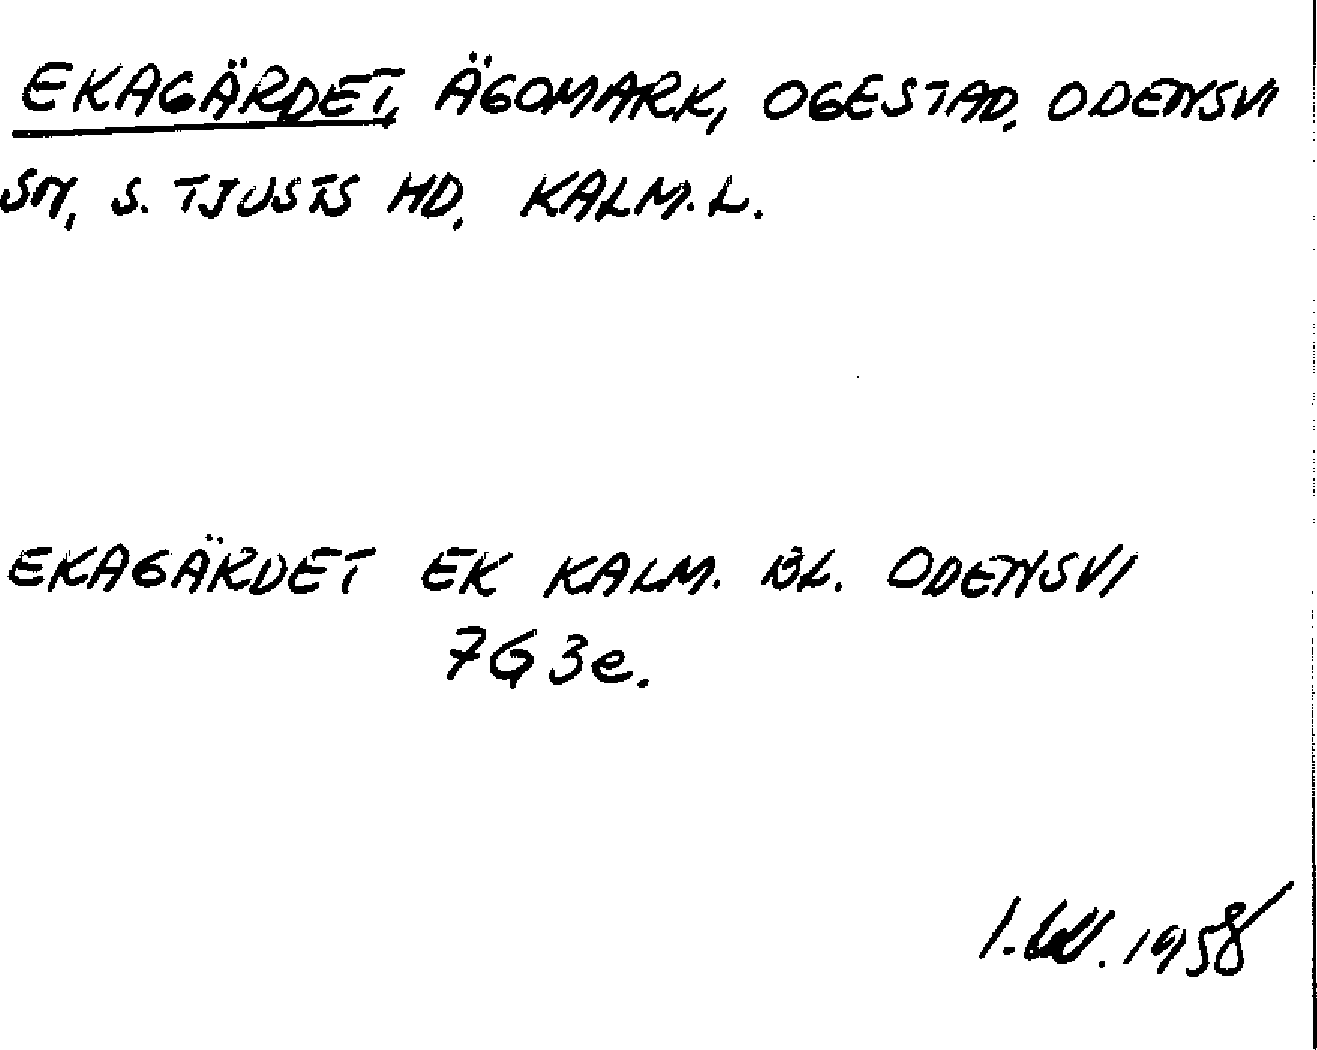 EKAGÄRDET, ÄGOMARK, OGESTAD, ODENSVI
SN, S. TJUSTS HD, KALM. L.
EKAGÄRDET EK KALM. BL. ODENSVI
7G 3e.
1958